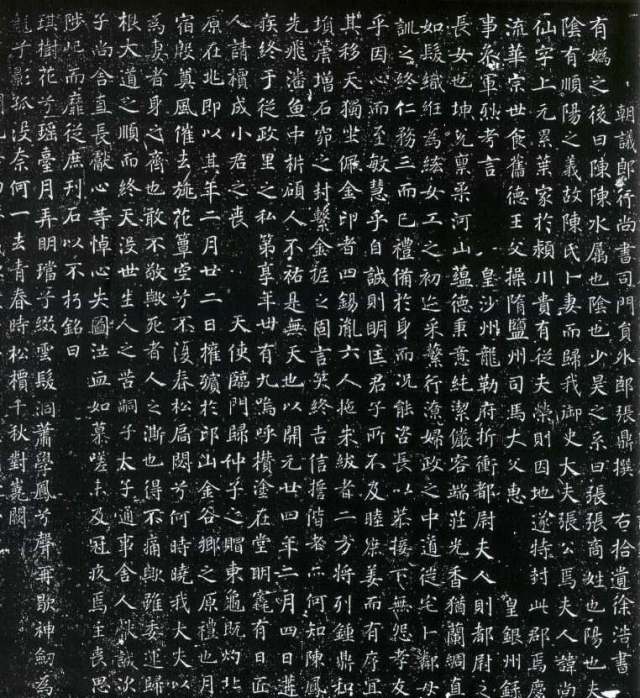 朝議郎行尚書司門員外郎張鼎撰 右拾遺徐浩書
有嬀之後曰陳陳水属也陰也少昊之系曰張張商姓也陽也夫
陰有順陽之義故陳氏卜妻而歸我御史大夫張公焉夫人諱尚
仙字上元累葉家於潁川貴有從夫榮則因地遂特封此郡焉
流華宗世食舊德王父操隋鹽州司馬大父惠 皇銀州
事叅軍烈考言 皇沙州龍勒府折衝都尉夫人則都尉之
長女也坤元稟柔河山蘊德秉意純潔儼容端莊光香猶蘭綢直
如髮織紝為絃女工之初也采蘩行潦婦政之中道從宅卜鄰母
訓之終仁務三而已禮備於身而况能咨長以恭接下無怨孝友
乎因心而至敏慧乎自誠則明匡君子所不及睦庶姜而有序宜
其移天獨坐佩金印者四錫胤六人拖朱紱者二方將列鍾鼎
增石窌之封繫金柅之固言笑終吉信誓偕老何知陳鳳
先飛潘魚中析碩人不祐是無天也以開元廿四年二月四日遘
疾終于從政里之私第享年卌有九嗚呼攢塗在堂明靈有日
人請櫝成小君之喪 天使臨門歸仲子之賵東龜既灼北
原在兆即以其年二月廿二日權殯於邙山金谷鄉之原禮也月
宿殷奠風催去旐花蕈空兮不復春松扃閟兮何時曉我大夫以
為妻者身之齊也敢不敬歟死者人之澌也得不痛歟雖委運歸
根大道之順而終天没世生人之苦嗣子太子通事舍人次
子尚舍直長獻心等悼心失圖泣血如慕嗟未及冠疚焉主喪思
陟屺而靡從庶刊石以不朽銘曰
琪樹花兮瑶臺月弄明璫子綴雲髮洞蕭學鳳兮聲再歇神劒為
龍子影孤没奈何一去青春時松檟千秋對嵩闕